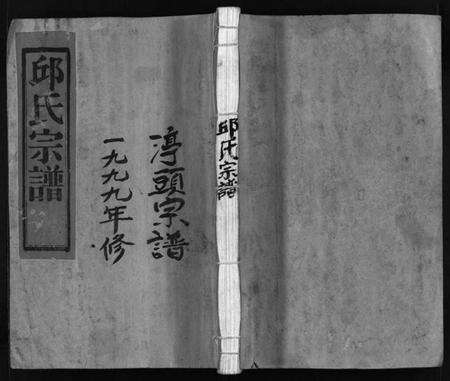 邱氏宗譜
渟頭宗譜
一九九九年修
邱氏宗譜